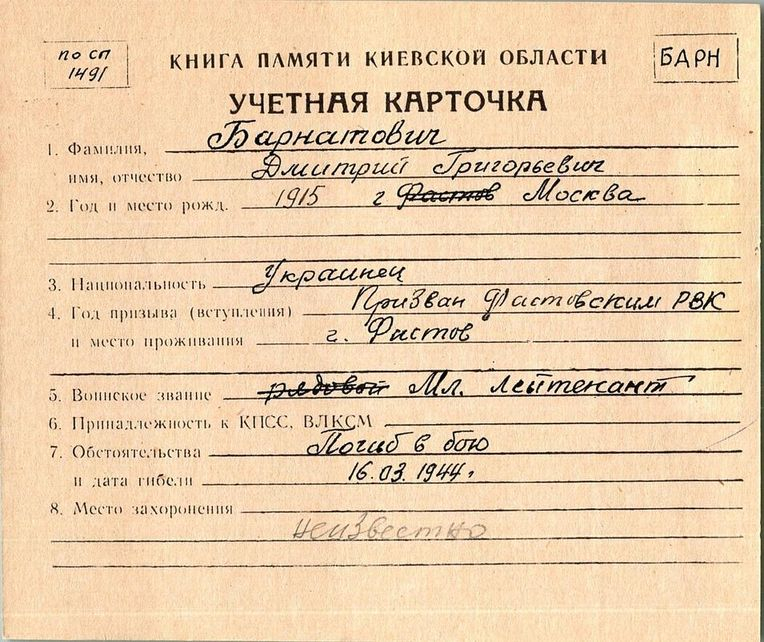 по сп
1491
КНИГА ПАМЯТИ КИЕВСКОЙ ОБЛАСТИ
БАРН
УЧЕТНАЯ КАРТОЧКА
1. Фамилия, Барнатович
имя, отчество Дмитрий Григорьевич
2. Год и место рожд. 1915 г Фастов Москва
3. Национальность Украинец
4. Год призыва (вступления) Призван Фастовским РВК
и место проживания г. Фастов
5. Воинское звание рядовой Мл. лейтенант
6. Принадлежность к КПСС, ВЛКСМ
7. Обстоятельства Погиб в бою
и дата гибели 16.03.1944г
8. Место захоронения
неизвестно